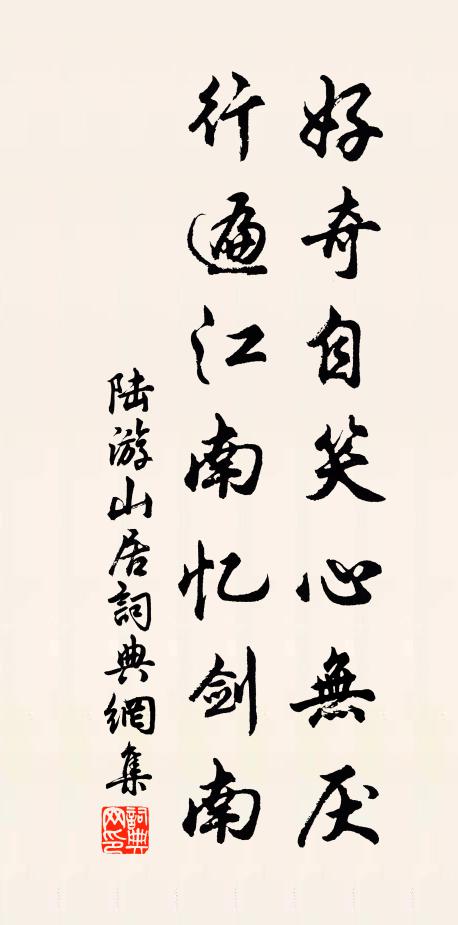 好奇自笑心無厌
行遍江南忆剑南
陆游山居詞典網集
詞典网印